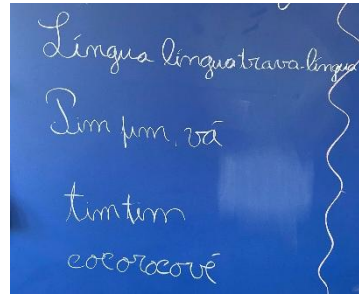 Língua línguatrava-língua
Pim pum, vá
timtim
cocorocové